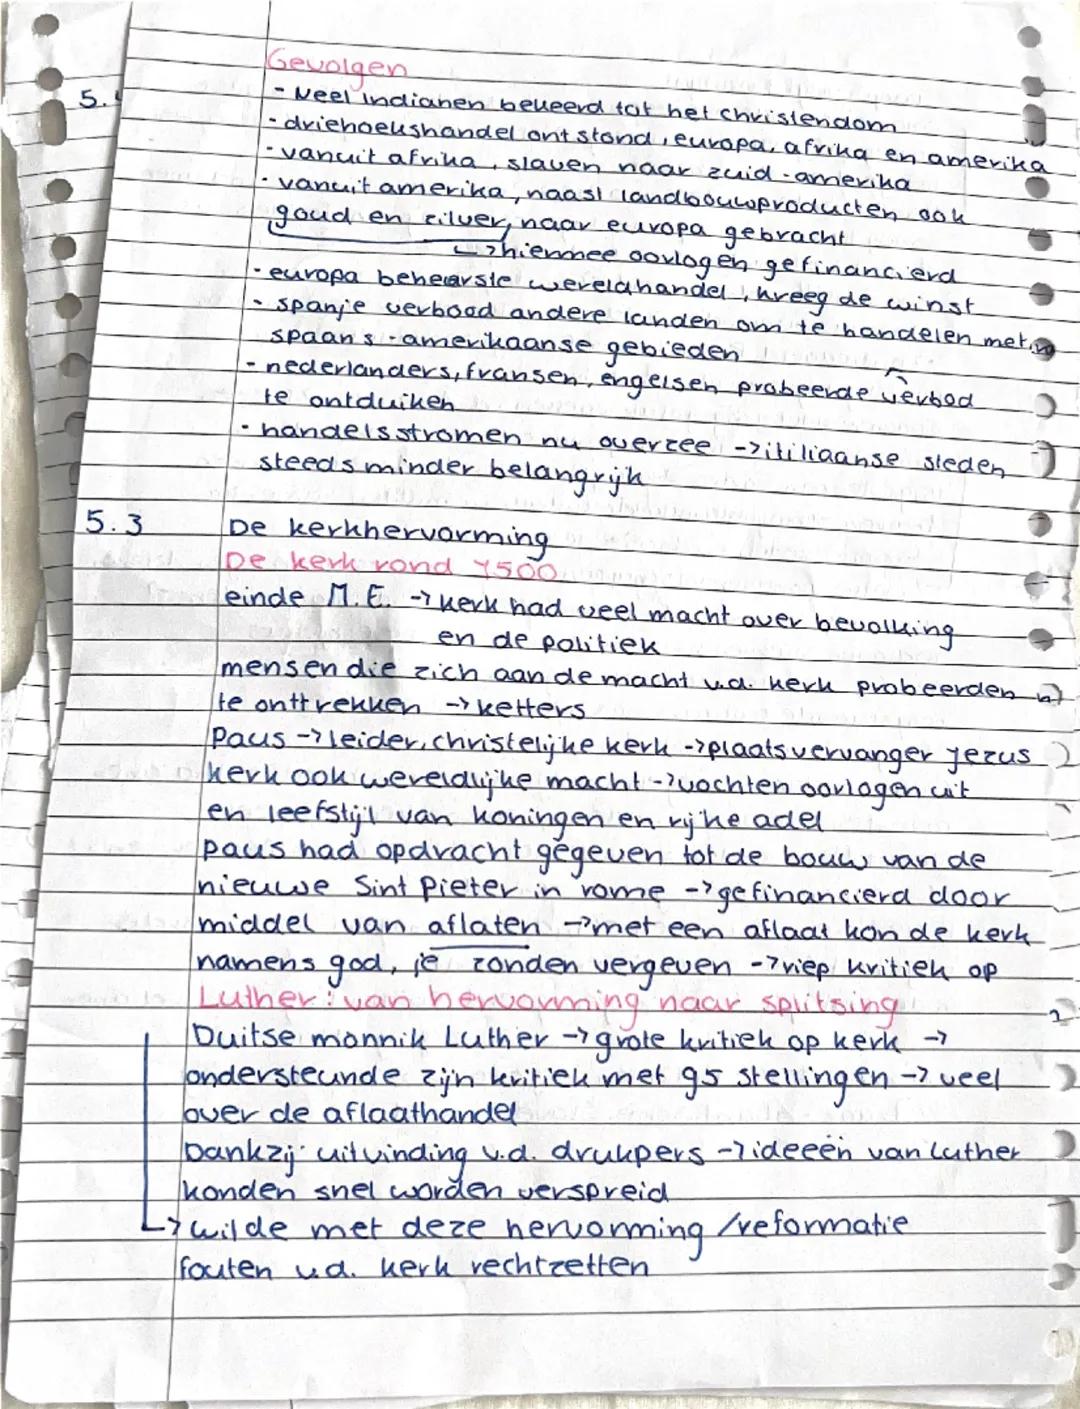 Gevolgen
5.
- Veel indianen bekeerd tot het christendom
- driehoekshandel ontstond, europa, afrika en amerika
- vanuit afrika, slaven naar zuid-amerika
- vanuit amerika, naast landbouwproducten ook
goud en zilver, naar europa gebracht
↳ hiermee oorlogen gefinancierd
- europa beheerste wereldhandel, kreeg de winst
- spanje verbood andere landen om te handelen met
spaans-amerikaanse gebieden
- nederlanders, fransen, engelsen probeerde verbod
te ontduiken
- handelsstromen nu overzee -> itiliaanse steden
steeds minder belangrijk
5.3 De kerkhervorming
De kerk rond 1500
einde M.E. -> kerk had veel macht over bevolking
en de politiek
mensen die zich aan de macht v.d. kerk probeerden
te onttrekken -> ketters
Paus -> leider, christelijke kerk -> plaatsvervanger jezus
kerk ook wereldlijke macht -> vochten oorlogen uit
en leefstijl van koningen en rijke adel
paus had opdracht gegeven tot de bouw van de
nieuwe Sint Pieter in rome -> gefinancierd door
middel van aflaten -> met een aflaat kon de kerk
namens god, je zonden vergeven -> riep kritiek op
Luther: van hervorming naar splitsing
Duitse monnik Luther -> grote kritiek op kerk ->
ondersteunde zijn kritiek met 95 stellingen -> veel
over de aflaathandel
Dankzij uitvinding v.d. drukpers -> ideeën van Luther
konden snel worden verspreid
↳ wilde met deze hervorming /reformatie
fouten v.d. kerk rechtzetten